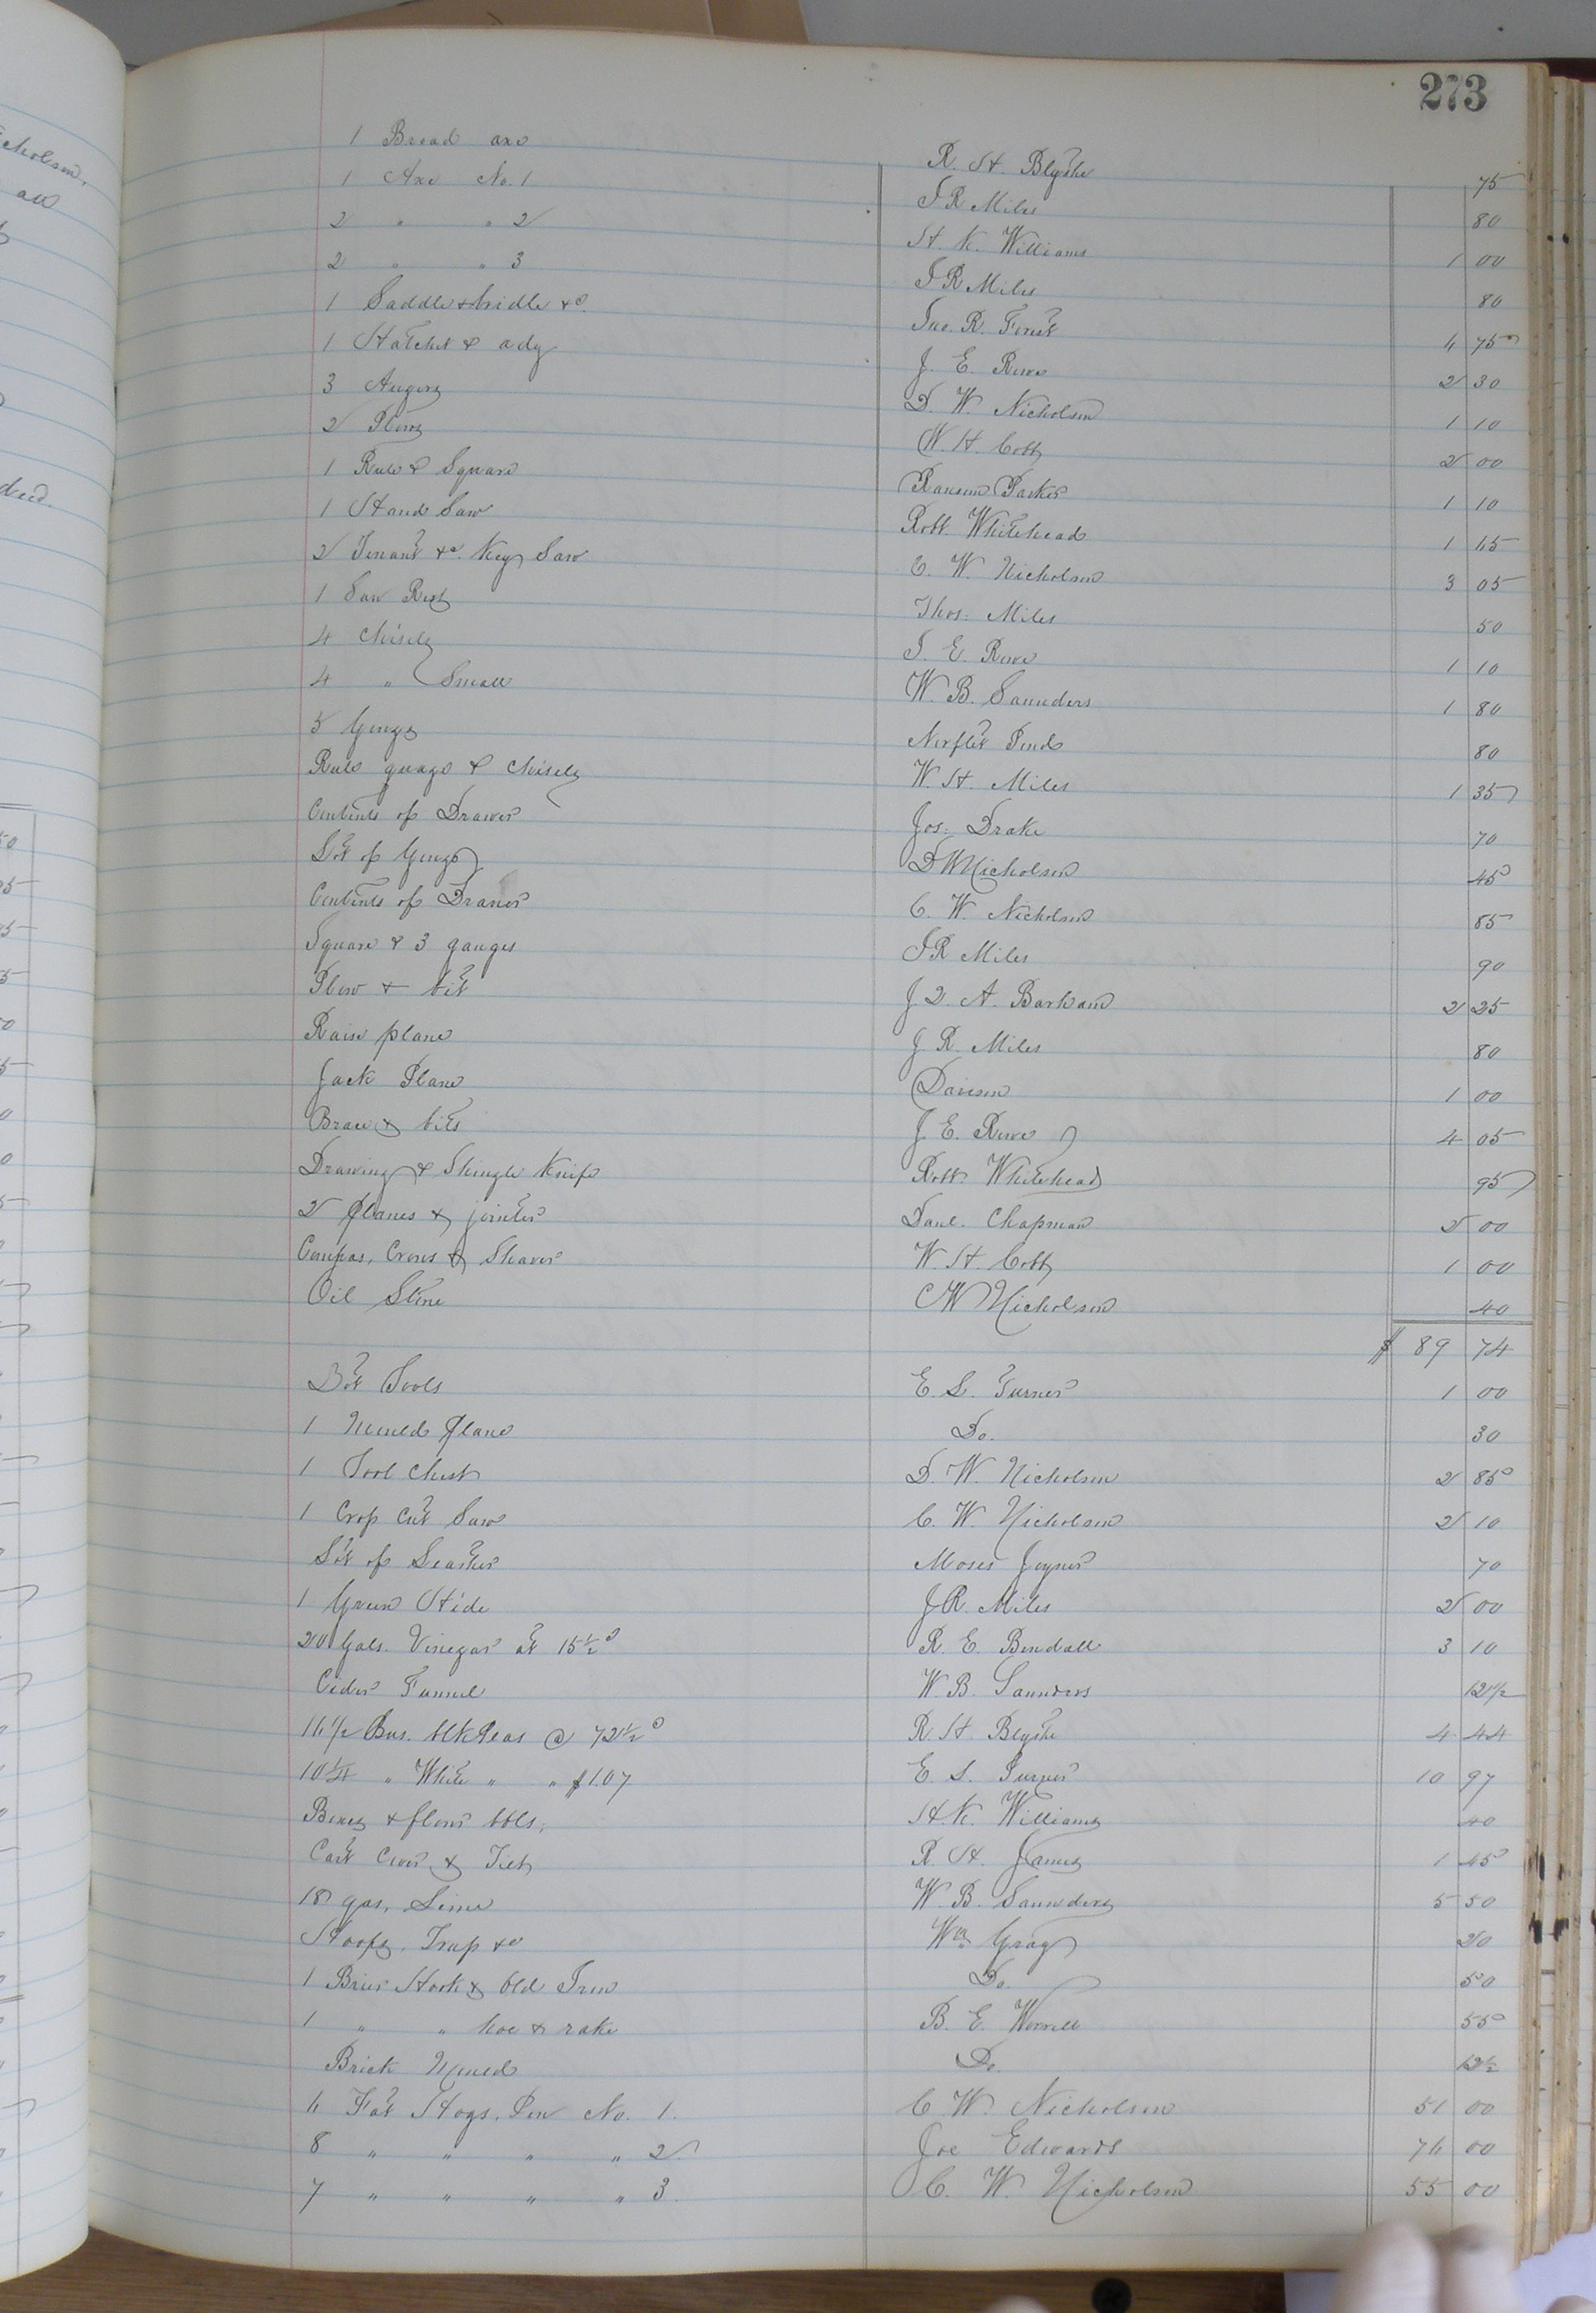 273
1 Broad axe R. H. Blythe 75
1 Axe No. 1 J R Miles 80
2 " " 2 H. K. Williams 1 00
2 " " 3 J R Miles 80
1 Saddle & bridle &c. Jno. R. 4 75
1 Hatchet & adz J. E. Rowe 2 30
3 Augers D. W. Nicholson 1 10
2 Plows W. H. Cobb 2 00
1 Rule & Square Ransom Parker 1 10
1 Hand Saw Robt. Whitehead 1 65
2 Tenant &c. Key Saw C. W. Nicholson 3 05
1 Saw Rest Thos. Miles 50
4 Chisels J. E. Rowe 1 10
4 " Small W. B. Saunders 1 80
5 Norflet 80
Rule guage & chisels W. H. Miles 1 35
Contents of Drawer Jos. Drake 70
Lot of D W Nicholson 45
Contents of Drawer C. W. Nicholson 85
Square & 3 gauges J R Miles 90
Plow & bit J. Q. A. Barham 2 25
Raise plane J. R. Miles 80
Jack Plane Davison 1 00
Brace & bits J. E. Rowe 4 05
Drawing & Shingle Knife Robt. Whitehead 95
2 planes & jointer Danl. Chapman 2 00
Compas, Crows & Shaver W. H. Cobb 1 00
Oil Stone C W Nicholson 40
$ 89 74
Lot Tools E. L. Turner 1 00
1 Plane Do. 30
1 Tool Chest D. W. Nicholson 2 85
1 Crop Cut Saw C. W. Nicholson 2 10
Lot of Leather Moses Joyner 70
1 Green Hide J R. Miles 2 00
20 Gals. Vinegar at 15½ c R. E. Bendall 3 10
Cider Funnel W. B. Saunders 12½
Bus. blk Peas @ 72½ c R. H. Blythe 4 44
10¼ " White " " $1.07 E. L. Turner 10 97
Boxes & flour bbls. H. K. Williams 40
Cart Cover & R. H. James 1 45
18 gas. W. B. Saunders 5 50
Hoops, Trap &c Wm. Gray 20
1 Brier Hook & Old Iron Do. 50
1 " " hoe & rake B. E. Worrell 55
Brick Do. 12½
6 Fat Hogs. Pen No. 1. C. W. Nicholson 51 00
8 " " " " 2. Joe Edwards 76 00
7 " " " " 3 C. W. Nicholson 55 00